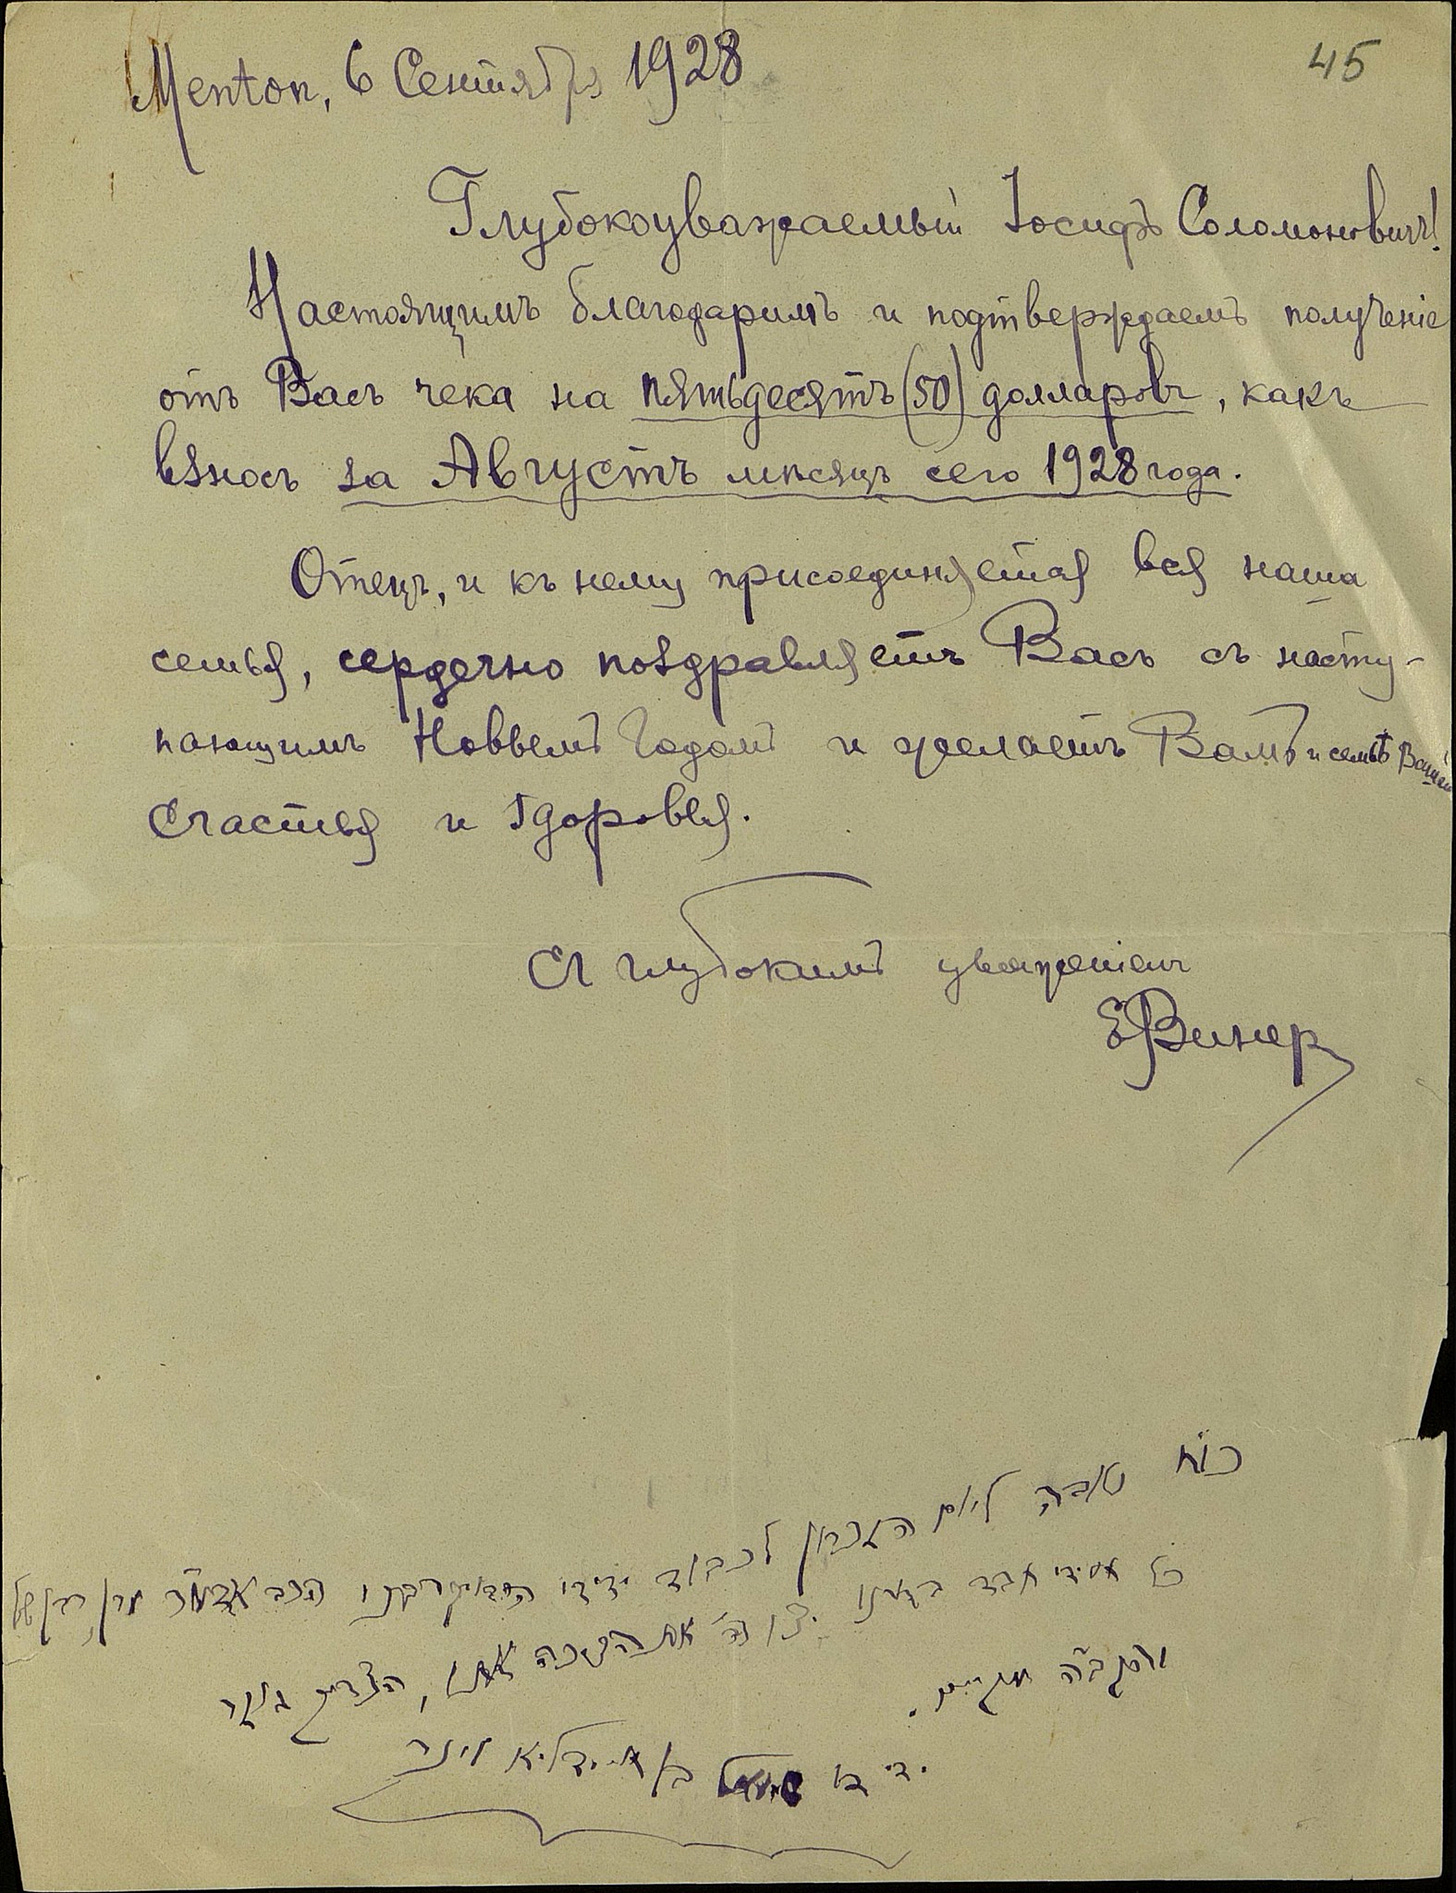 45
Menton, 6 Сентября 1928
Глубокоуважаемый Іосифъ Соломоновичъ!
Настоящимъ благодаримъ и подтверждаемъ полученіе
отъ Васъ чека на пятьдесятъ (50) долларовъ, какъ
взносъ за Августъ мѣсяцъ сего 1928 года.
Отецъ, и къ нему присоединяется вся наша
семья, сердечно поздравляетъ Васъ съ насту-
пающимъ Новымъ Годомъ и желаетъ Вамъ и семьѣ Вашей
счастья и здоровья.
Съ глубокимъ уваженіемъ
ЕВинер
טובה ליום הזכרון לכבוד ידידי
הצדיק גוזר
והקב״ה מקיים.
ידידו שמואל בן וינר